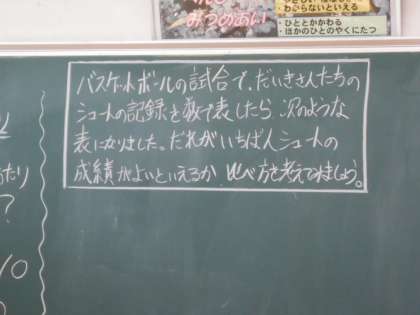 みつめあい
わるらないといえる
・ひととかかわる
・ほかのひとのやくにたつ
バスケットボールの試合で、だいきさんたちの
シュートの記録を数で表したら、次のような
表になりました。だれがいちばんシュートの
成績がよいといえるか、比べ方を考えてみましょう。
たり
?